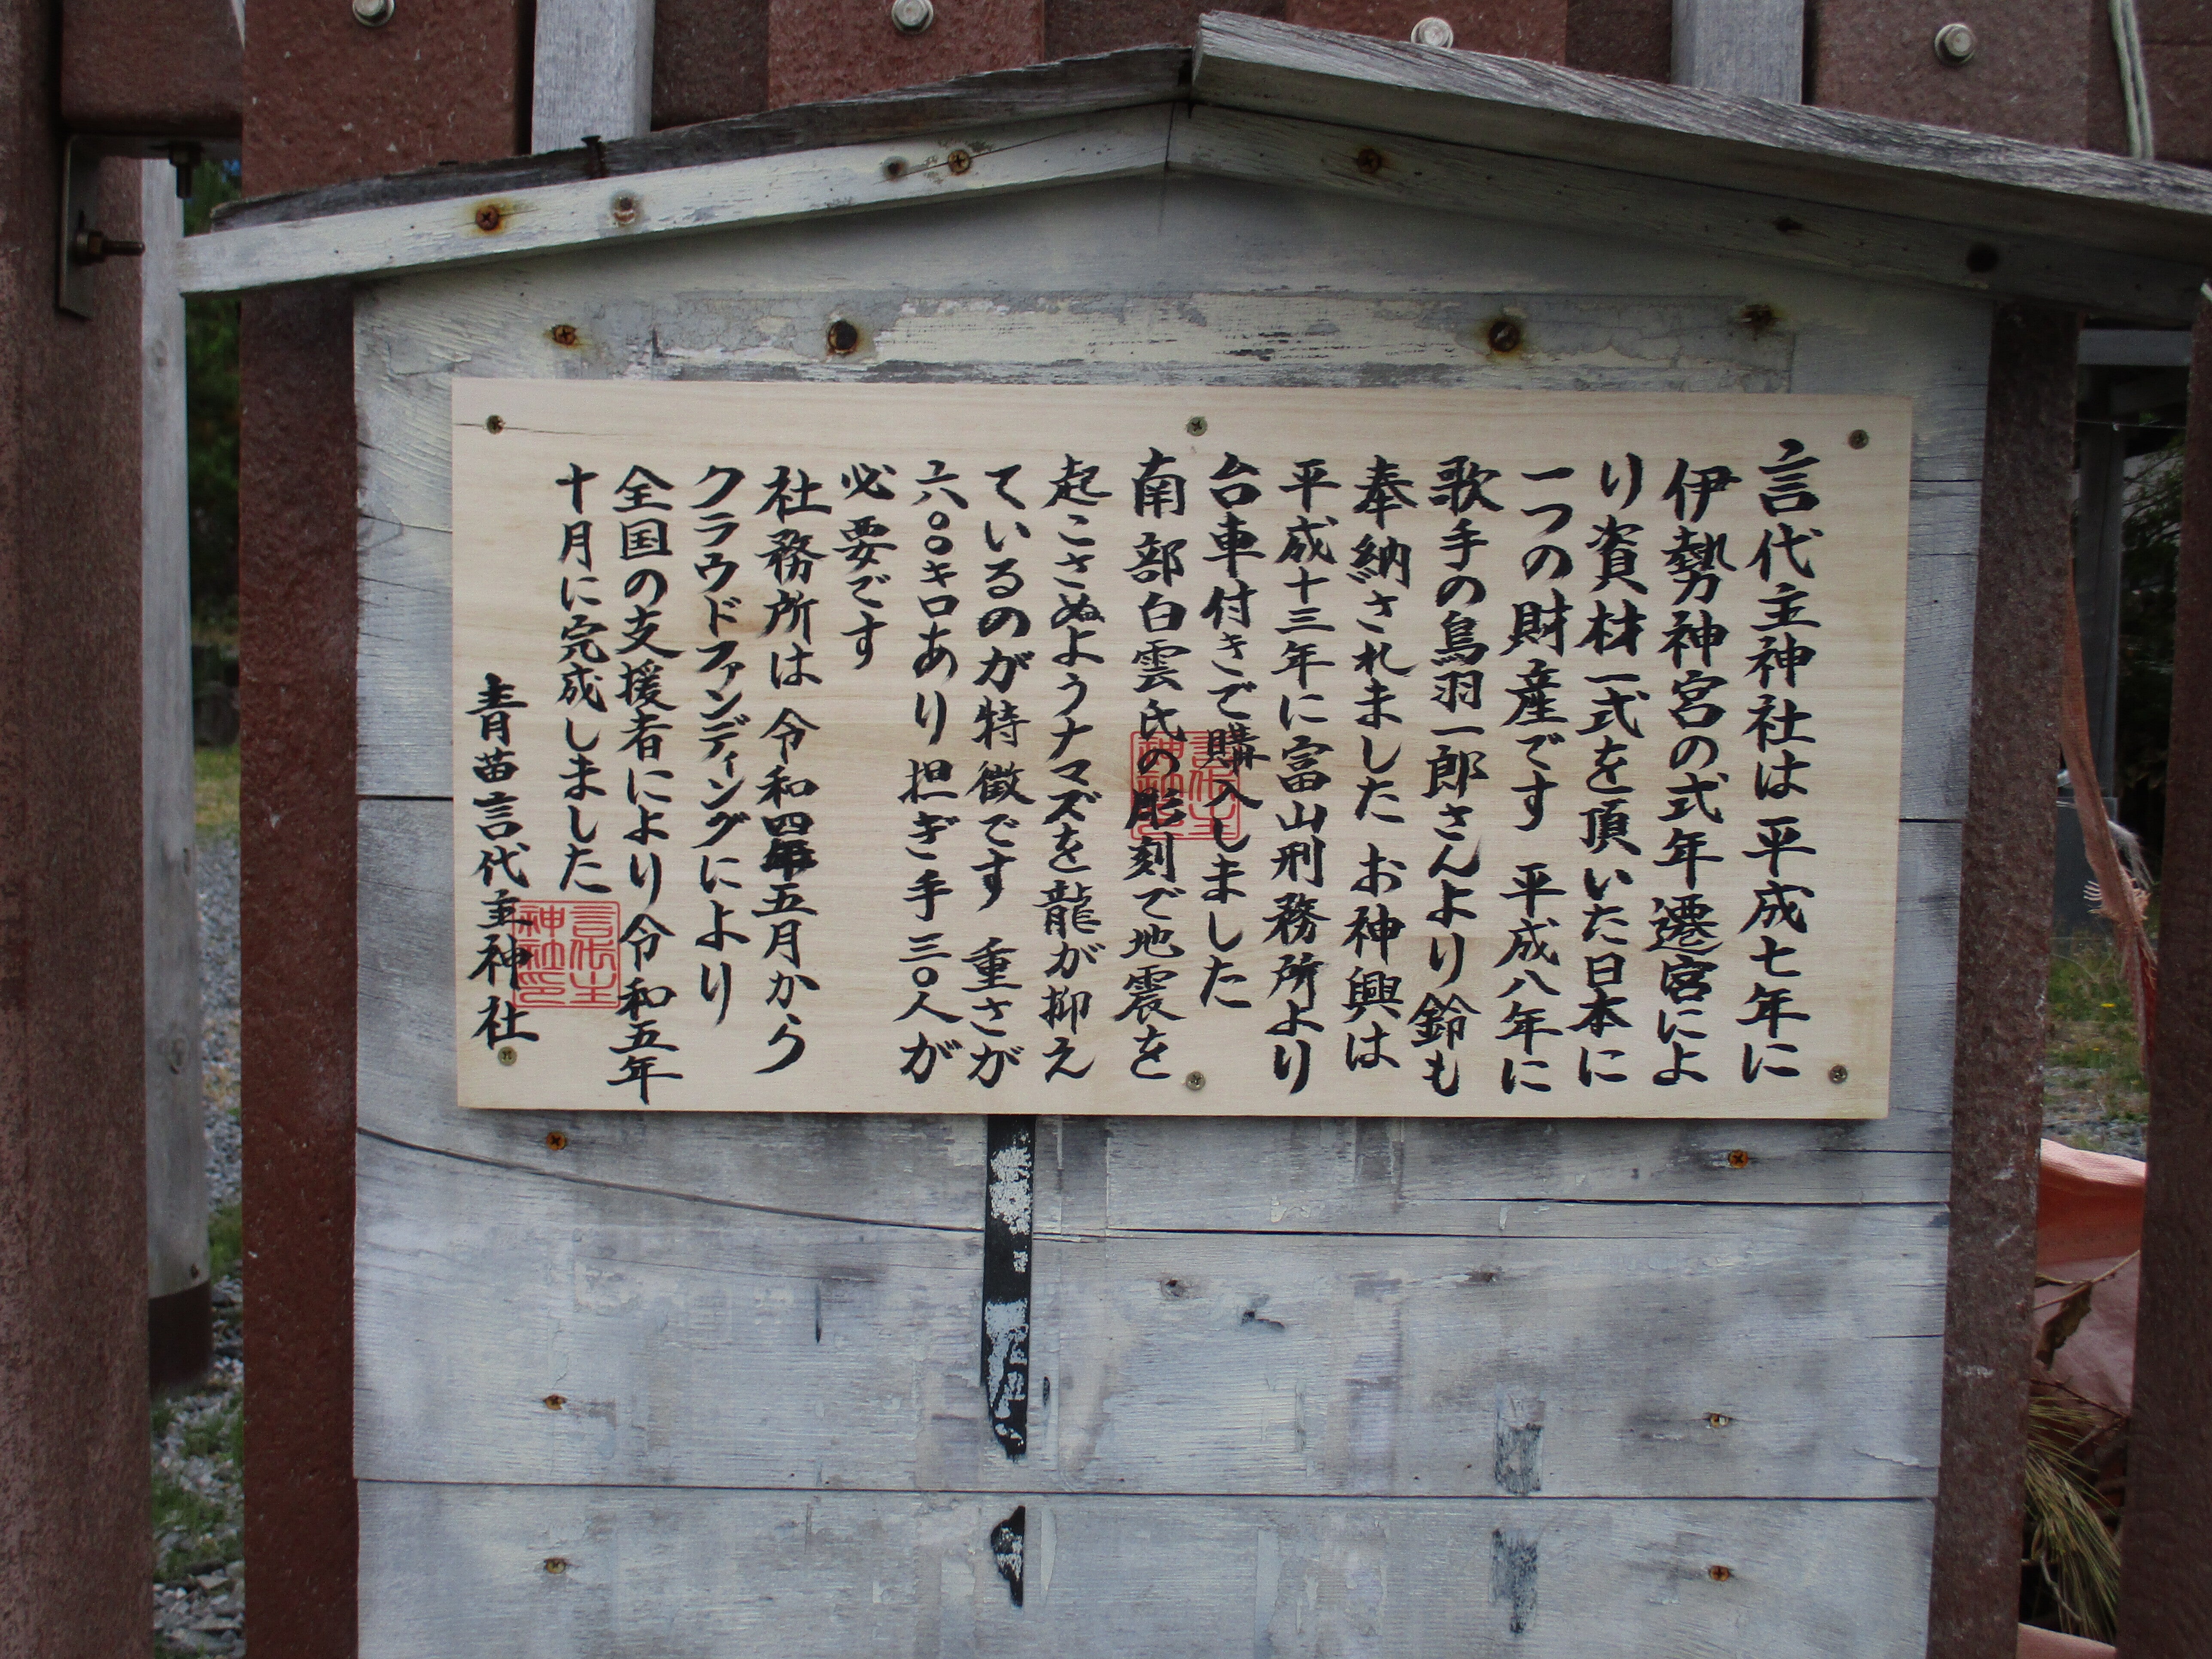 言代主神社は平成七年に
伊勢神宮の式年遷宮によ
り資材一式を頂いた日本に
一つの財産です 平成八年に
歌手の鳥羽一郎さんより鈴も
奉納されました お神興は
平成十三年に富山刑務所より
台車付きで購入しました
南部白雲氏の彫刻で地震を
起こさぬようナマズを龍が抑え
ているのが特徴です 重さが
六〇〇キロあり担ぎ手三〇人が
必要です
社務所は令和四年五月から
クラウドファンディングにより
全国の支援者により令和五年
十月に完成しました
青苗言代主神社
言代主
神社印